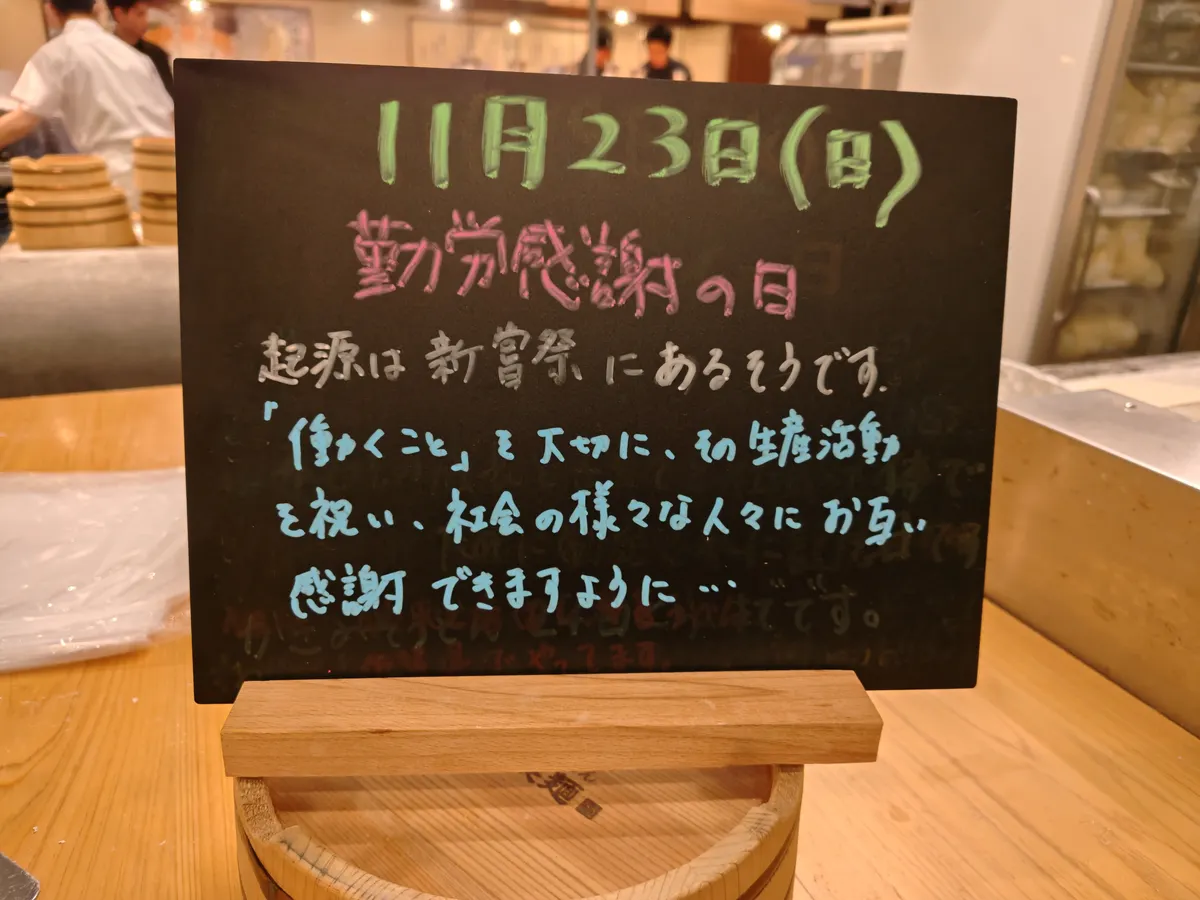 11月23日(日)
勤労感謝の日
起源は新嘗祭にあるそうです.
「働くこと」を大切に、その生産活動
を祝い、社会の様々な人々にお互い
感謝できますように…